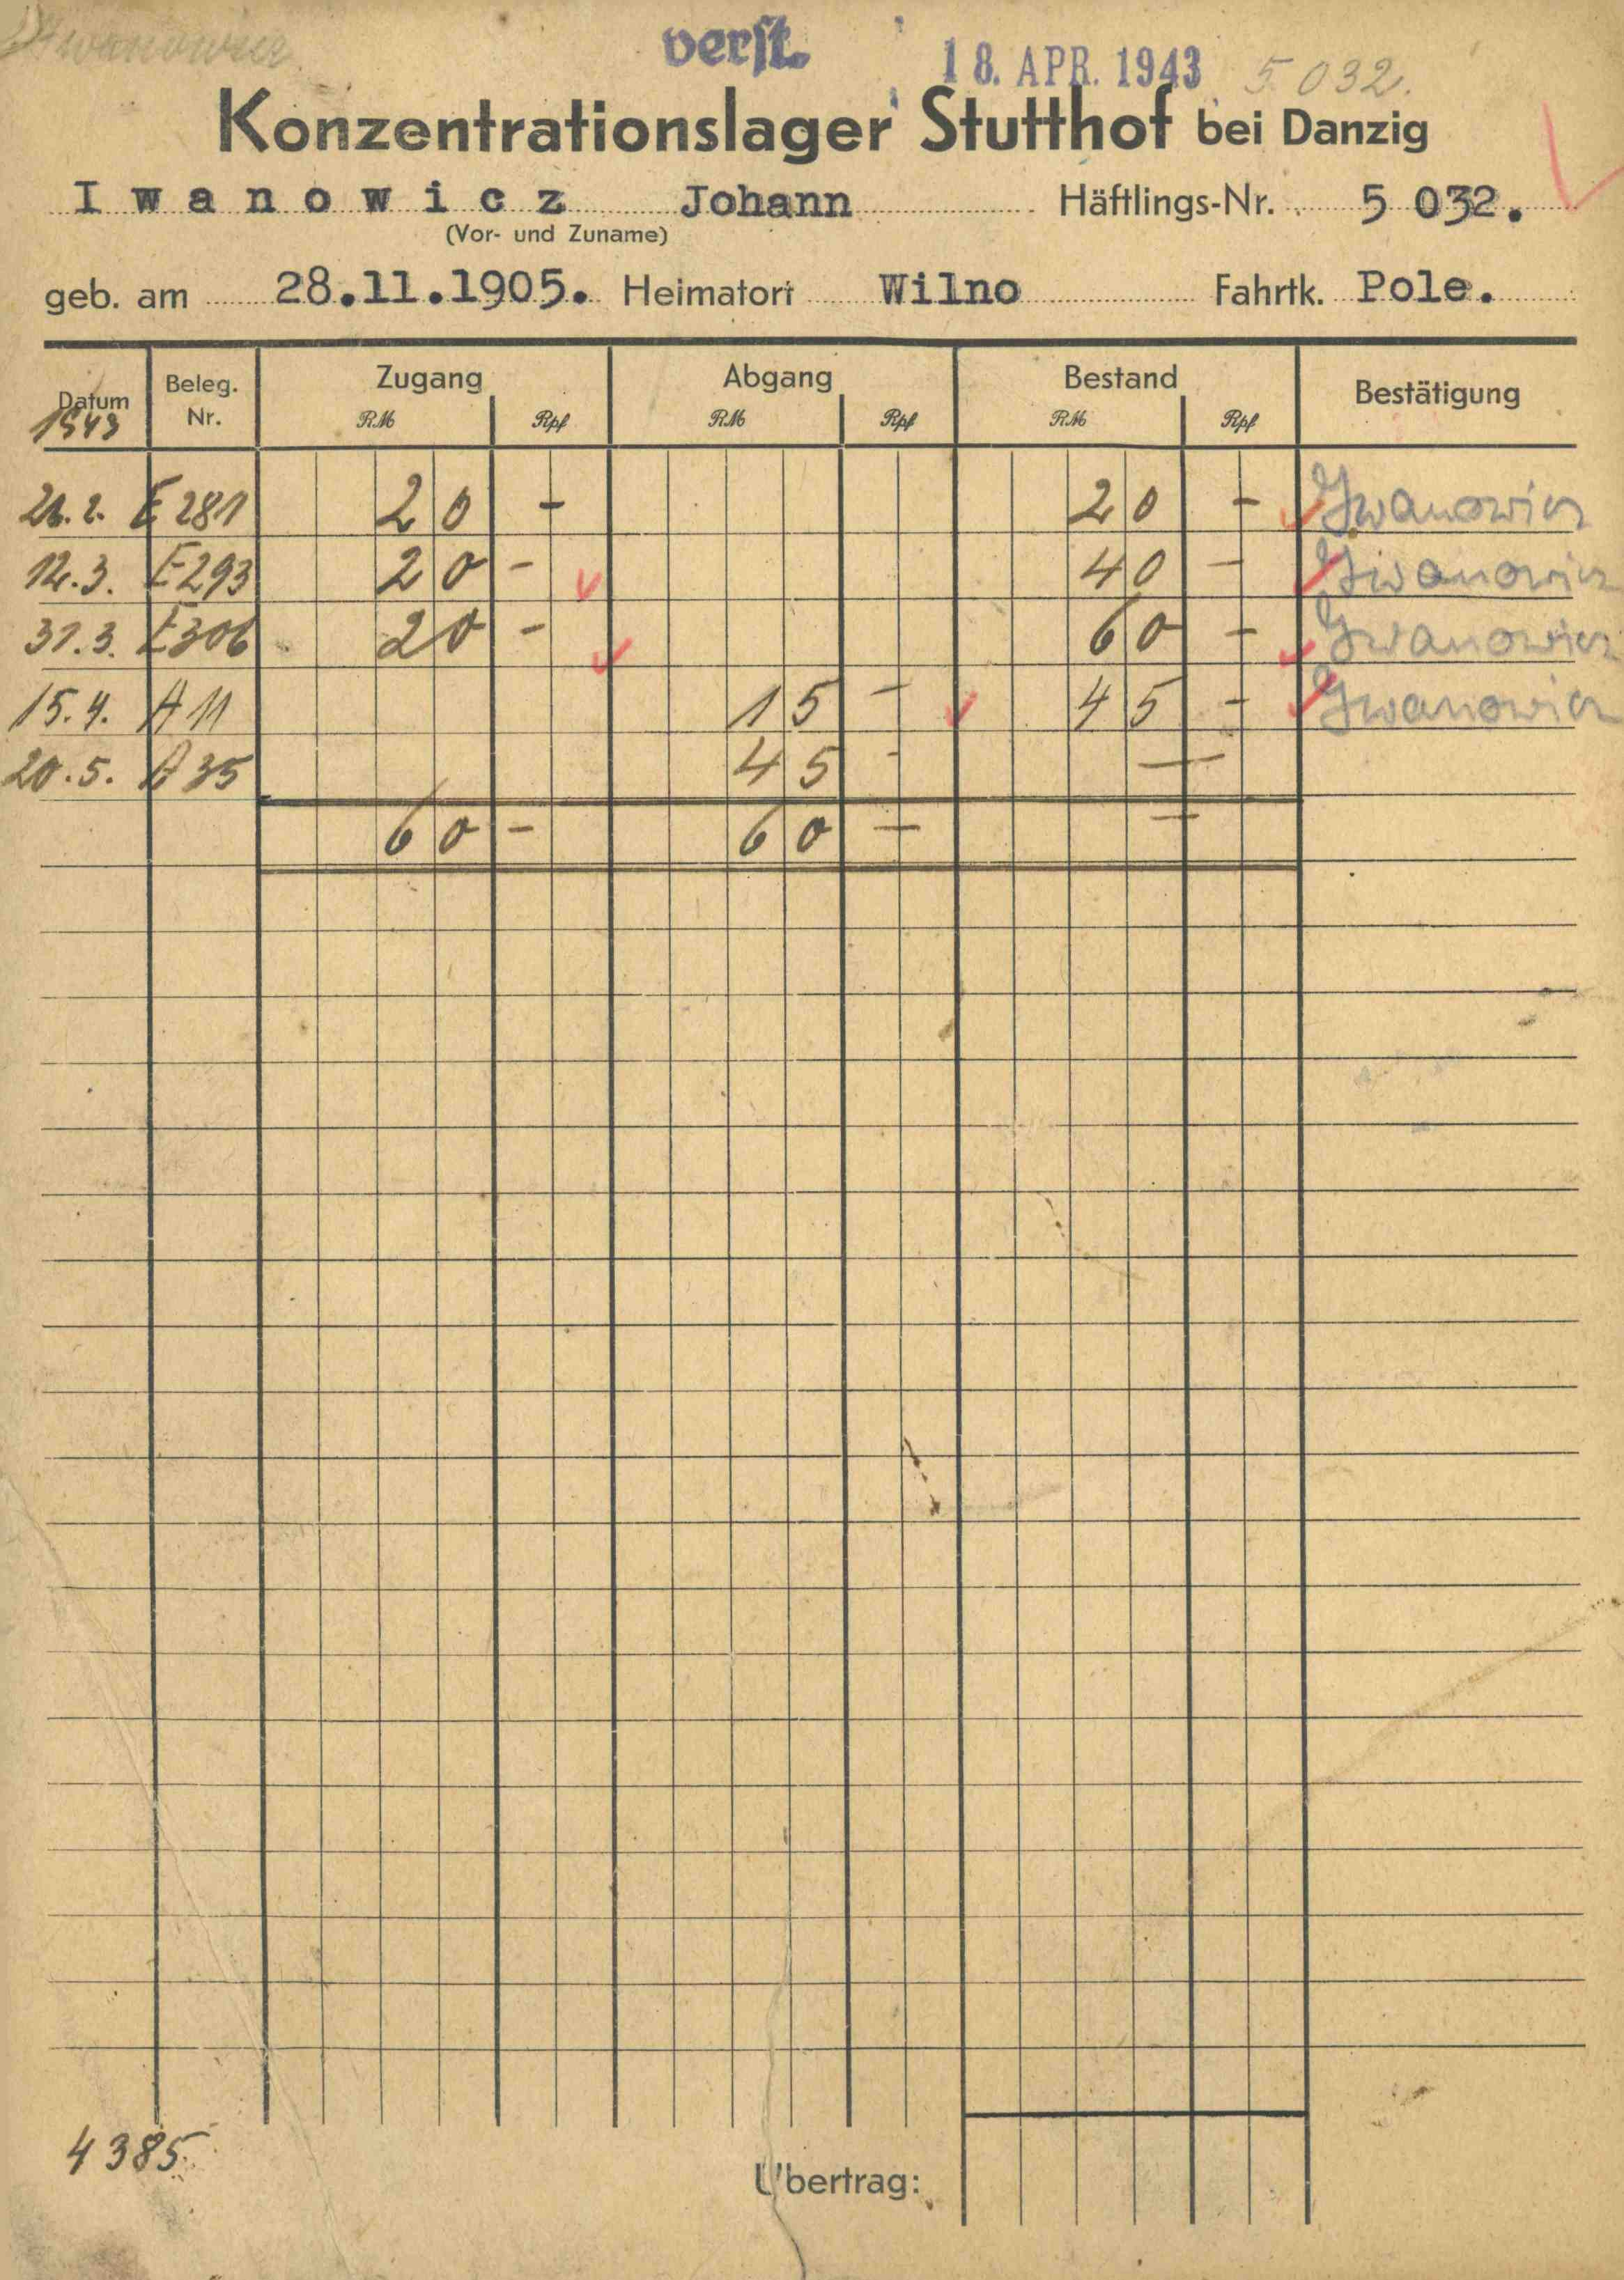 Iwanowicz
verst. 18. APR. 1943 5 032.
Konzentrationslager Stutthof bei Danzig
Iwanowicz Johann Häftlings-Nr. 5 032.
(Vor- und Zuname)
geb. am 28.11.1905. Heimatort Wilno Fahrtk. Pole.
Datum 1943 Beleg. Nr. Zugang Abgang Bestand Bestätigung
RM Rpf RM Rpf RM Rpf
E 281 20 - 20 - Iwanowicz
12.3. E293 20 - 40 - Iwanowicz
31.3. E306 20 - 60 - Iwanowicz
15.4. A 11 15 - 45 - Iwanowicz
20.5. A 35 45 - —
60 - 60 — —
4385
Übertrag: